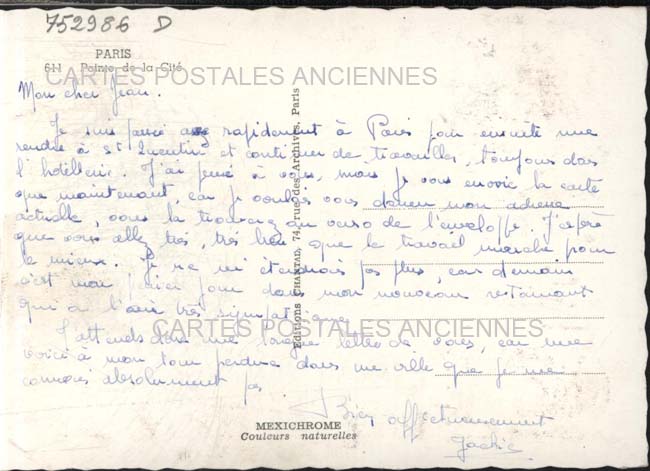 752986 D
PARIS
611 Pointe de la Cité
CARTES POSTALES ANCIENNES
Mon cher Jean.
Je suis passé assez rapidement à Paris pour ensuite me
rendre à St Quentin et continuer de travailler, toujours dans
l'hôtellerie. J'ai pensé à vous, mais je vous envoie la carte
que maintenant, car je voulais vous donner mon adresse
actuelle, vous la trouverez au verso de l'enveloppe. J'espère
que vous allez très, très bien que le travail marche pour
le mieux. Je ne m'étendrais pas plus, car demain
c'est mon premier jour dans mon nouveau restaurant
qui a l'air très sympathique
CARTES POSTALES ANCIENNES
J'attends donc une longue lettre de vous, car me
voici à mon tour perdue dans une ville que je ne
connais absolument pas
Bien affectueusement
Jackie
Editions CHANTAL, 74, rue des Archives, Paris
MEXICHROME
Couleurs naturelles